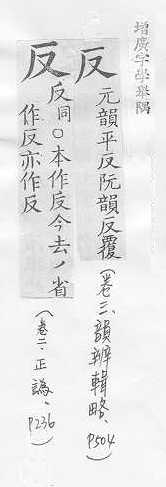 增廣字學舉隅
反 元韻平反阮韻反覆
（卷三、韻辨輯略、P504）
反 反同○本作反今去丿省
作反亦作反
（卷二、正譌、P236）